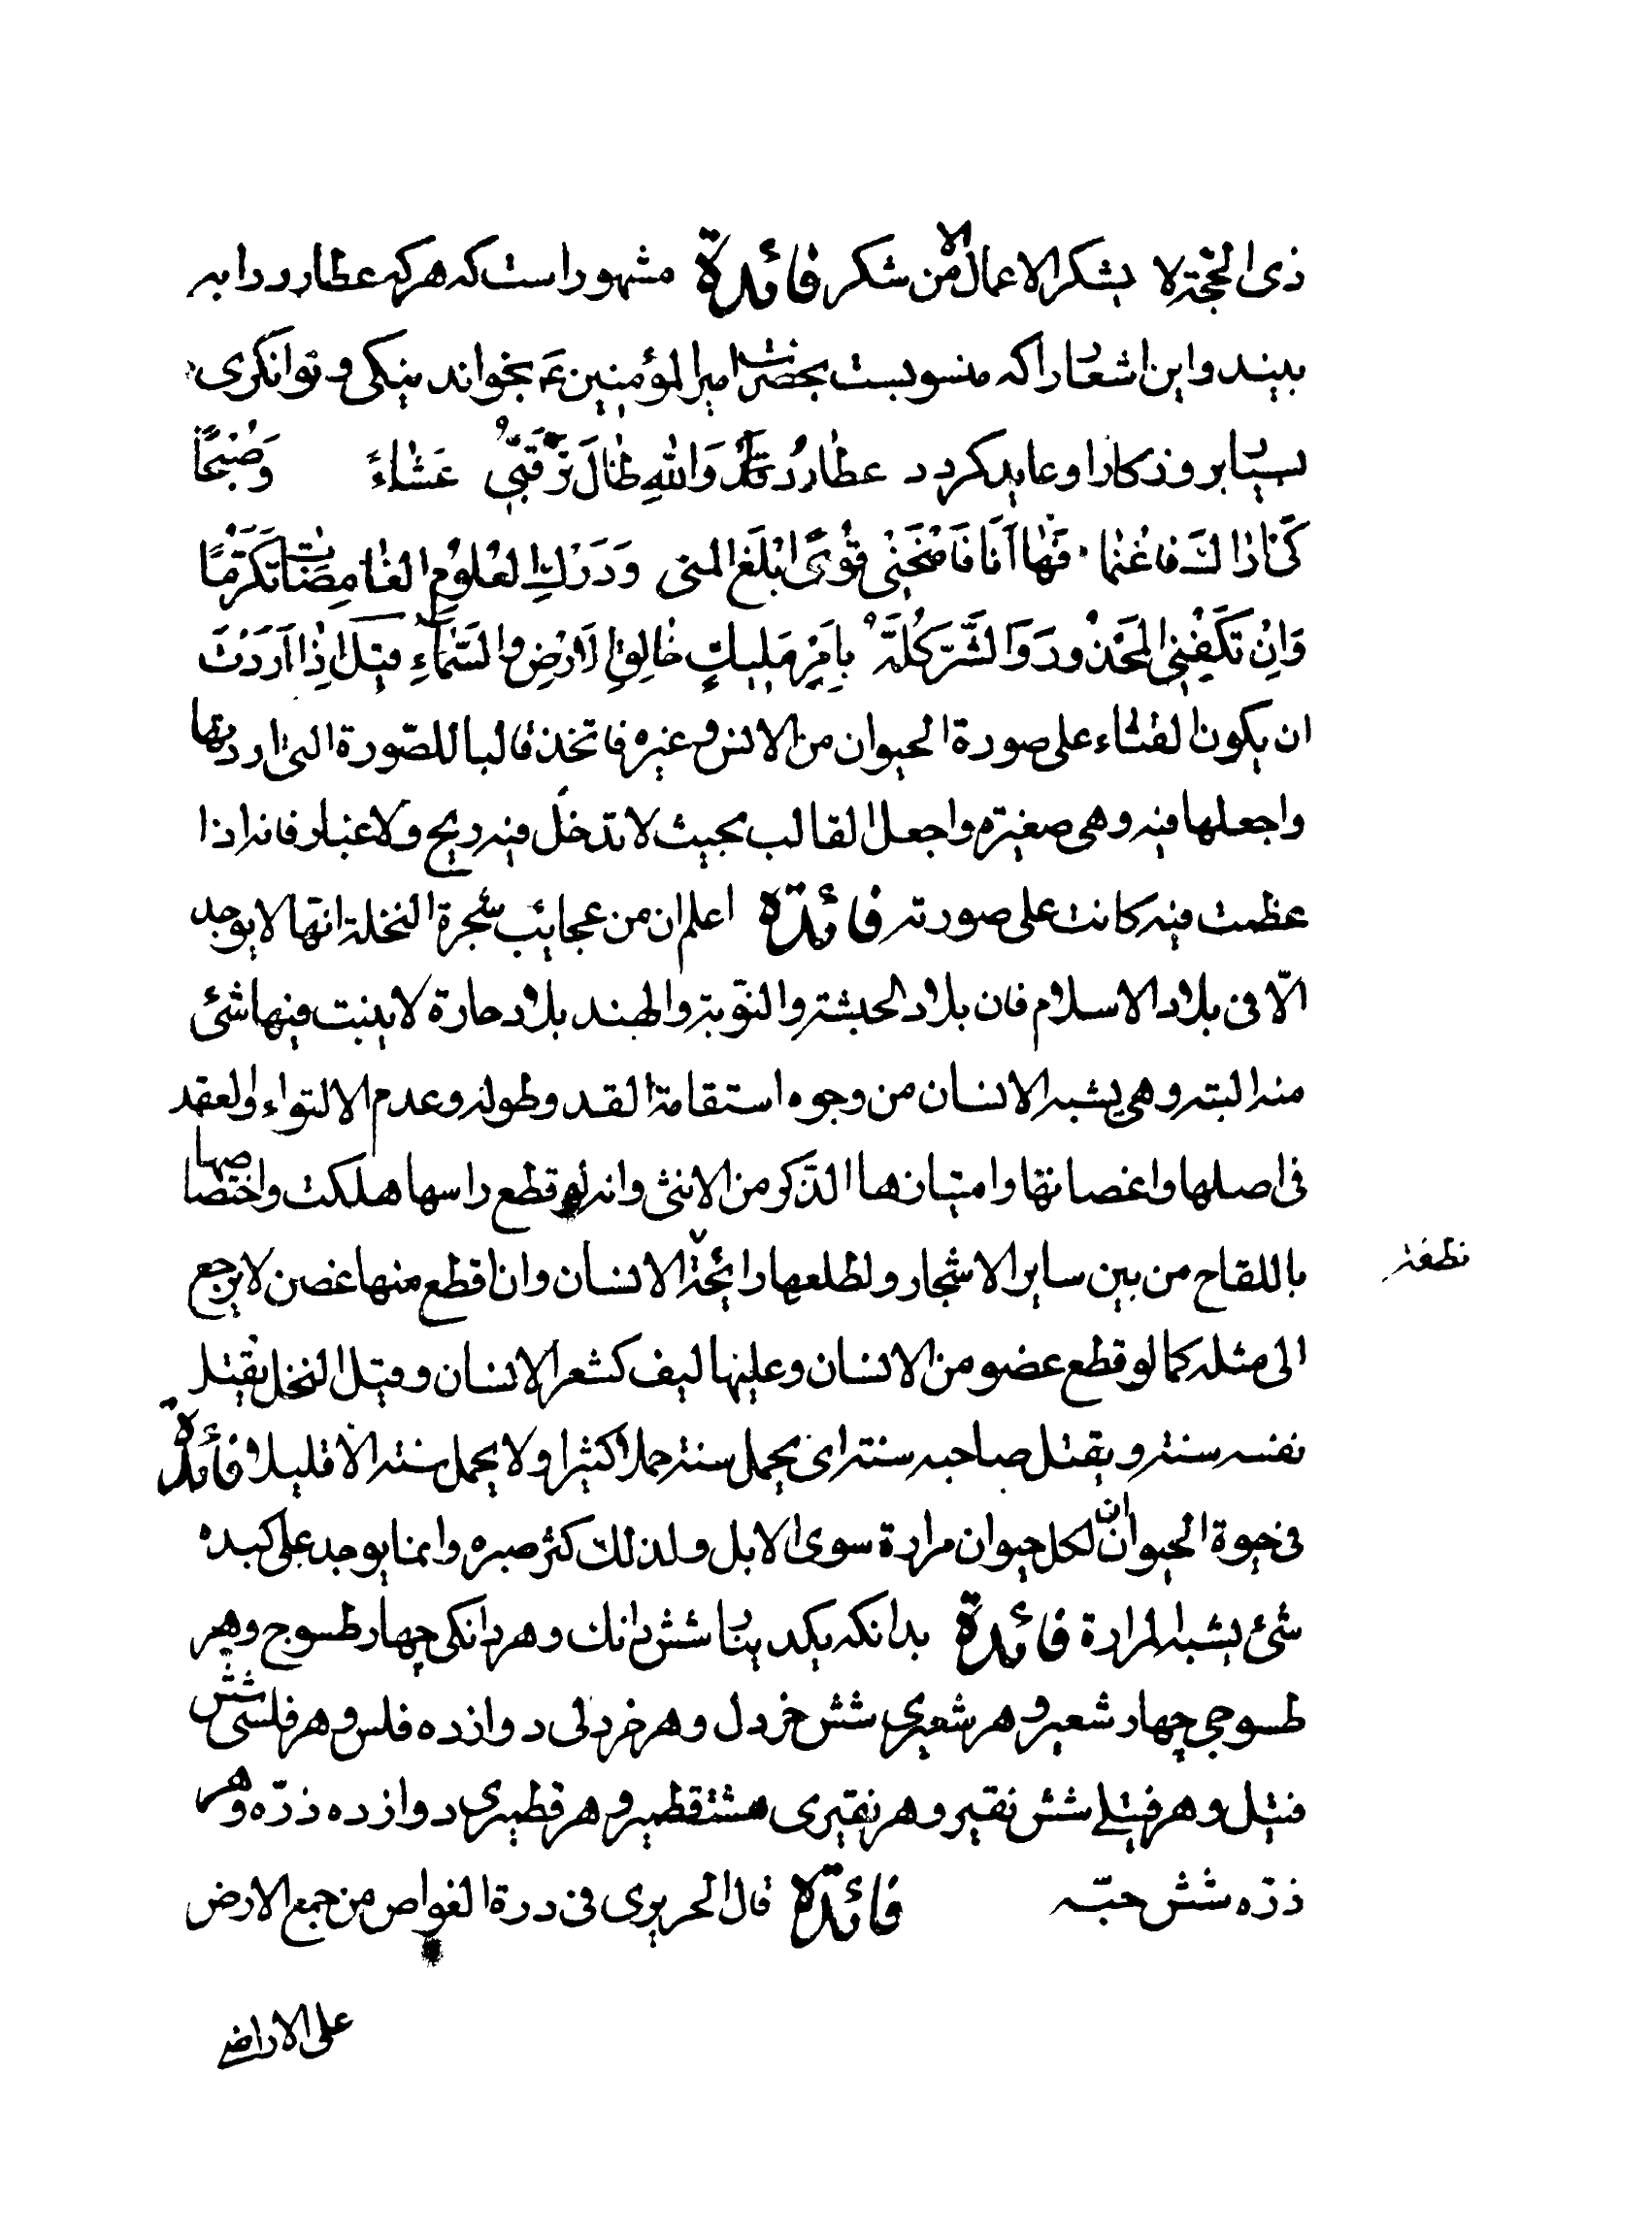 ذی الحجّة لا یشکر الاعمال الا من شکر فائدة مشهور است که هر که عطارد را به
بیند و این اشعار را که منسوبست بحضرت امیر المؤمنین ع بخواند نیکی و توانکری
بسیار بروزکار او عاید کردد عطارد تالله والله طال ترقبی عشاءً وصبحًا
کی اراك فاغنما فها انا فامنحنی قوی ابلغ المنی ودرك العلوم الغامضات تکرّمًا
وان تکفنی المحذور والشر کله بامر ملیك خالق الارض والسّماء قیل اذا اردت
ان یکون القثاء علی صورة الحیوان من الانس وغیره فاتخذ قالبا للصّورة التی اردتها
واجعلها فیه وهی صغیرة واجعل القالب بحیث لا تدخل فیه ریح ولا غبار فانه اذا
عظمت فیه کانت علی صورته فائدة اعلم ان من عجایب شجرة النخلة انّها لا یوجد
الّا فی بلاد الاسلام فان بلاد الحبشة والنّوبة والهند بلاد حارة لا ینبت فیها شئ
منه البته وهی یشبه الانسان من وجوه استقامة القد وطوله وعدم الالتواء والعقد
فی اصلها واغصانها وامتیازها الذّکر من الانثی وانه لو قطع راسها هلکت واختصاصها
باللقاح من بین سایر الاشجار ولطلعها رائحة الانسان وان قطع منها غصن لا یرجع
نطفة
الی مثله کما لو قطع عضو من الانسان وعلیها لیف کشعر الانسان وقیل النخل یقتل
نفسه سنة ویقتل صاحبه سنة ای یحمل سنة حملا کثیرا ولا یحمل سنة الا قلیلا فائدة
فی حیوة الحیوان ان لکل حیوان مرارة سوی الابل ولذلك کثر صبره وانما یوجد علی کبده
شئ یشبه المرارة فائدة بدانکه یکدینار شش دانك و هر دانکی چهار طسوج و هر
طسوجی چهار شعیر و هر شعیری شش خردل و هر خردلی دوازده فلس و هر فلسی شش
فتیل و هر فتیلی شش نقیر و هر نقیری هشت قطمیر و هر قطمیری دوازده ذرّه و هر
ذرّه شش حبّه فائدة قال الحریری فی درة الغواص من جمع الارض
علی الاراضی